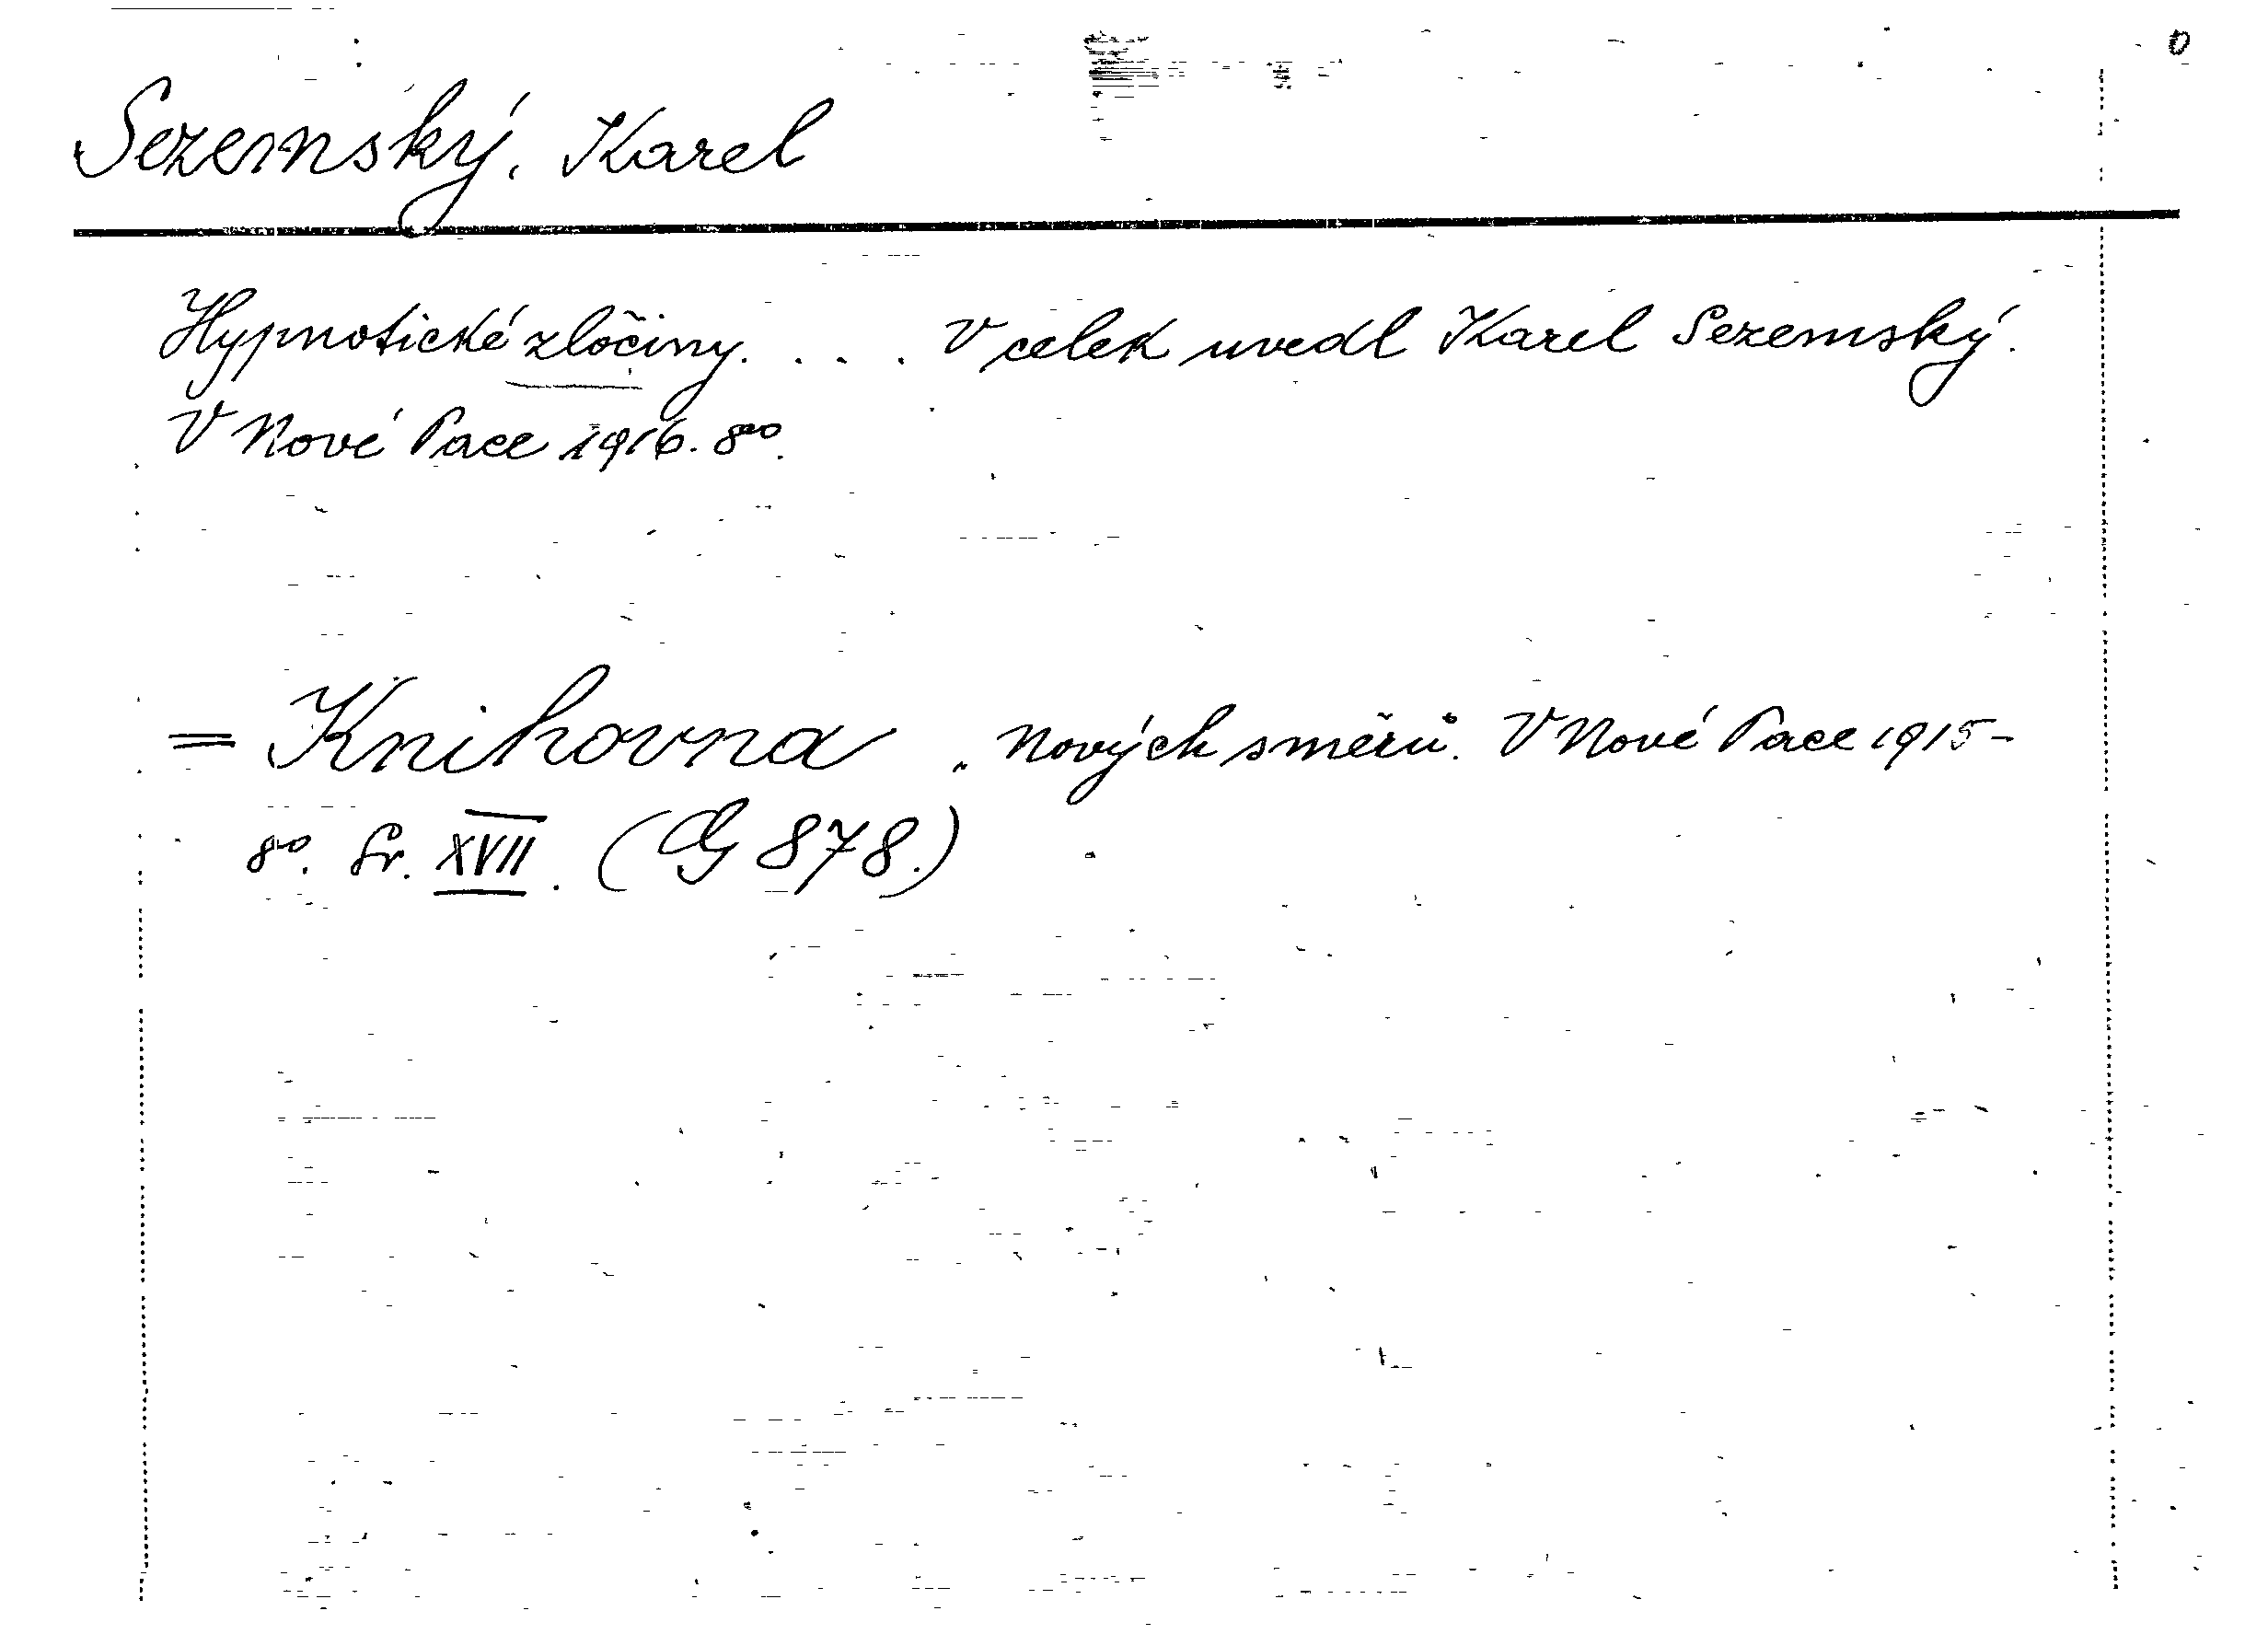 0
Sezemský, Karel
Hypnotické zločiny. . . . V celek uvedl Karel Sezemský.
V Nové Pace 1916. 8vo.
= Knihovna „ nových směrů. V Nové Pace 1915 -
8vo. Sv. XVII. (G 878.)